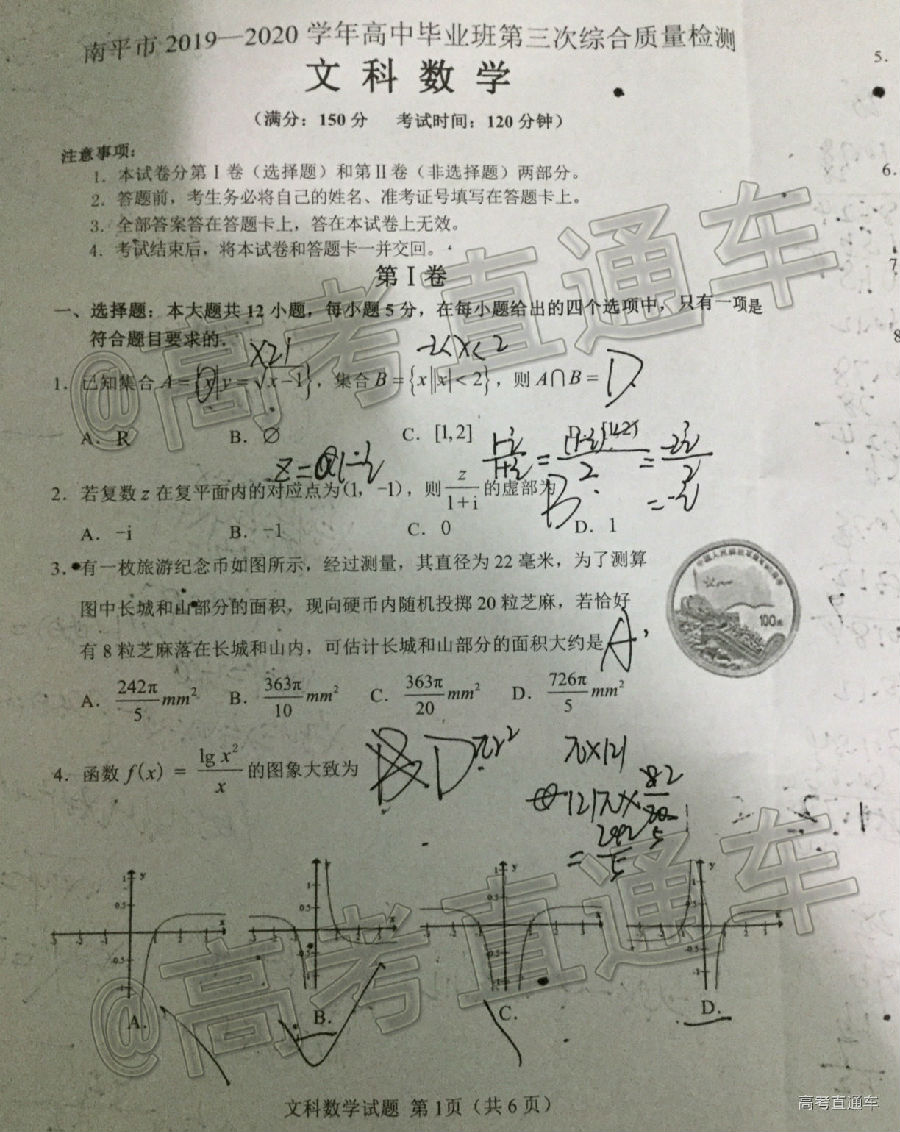 南平市 2019—2020 学年高中毕业班第三次综合质量检测
文 科 数 学
（满分：150 分 考试时间：120 分钟）
注意事项：
1．本试卷分第Ⅰ卷（选择题）和第Ⅱ卷（非选择题）两部分。
2．答题前，考生务必将自己的姓名、准考证号填写在答题卡上。
3．全部答案答在答题卡上，答在本试卷上无效。
4．考试结束后，将本试卷和答题卡一并交回。
第Ⅰ卷
一、选择题：本大题共 12 小题，每小题 5 分，在每小题给出的四个选项中，只有一项是
符合题目要求的．
x≥1 -2<x<2
1．已知集合 A={x|y=√x-1}，集合 B={x||x|<2}，则 A∩B= D
A．R B．∅ C．[1,2] D．[1,2)
z=1-i
1-i/1+i = (1-i)²/2 = -2i/2 = -i
2．若复数 z 在复平面内的对应点为(1，-1)，则 z/1+i 的虚部为 B
A．-i B．-1 C．0 D．1
3．有一枚旅游纪念币如图所示，经过测量，其直径为 22 毫米，为了测算
图中长城和山部分的面积，现向硬币内随机投掷 20 粒芝麻，若恰好
有 8 粒芝麻落在长城和山内，可估计长城和山部分的面积大约是 A
100
A．242π/5 mm² B．363π/10 mm² C．363π/20 mm² D．726π/5 mm²
πr² π×121
4．函数 f(x) = lg x²/x 的图象大致为 D
121π×8/20
=242/5
A． B． C． D．
文科数学试题 第 1页（共 6 页）
5．
6．
7
8
@高考直通车
@高考直通车
高考直通车